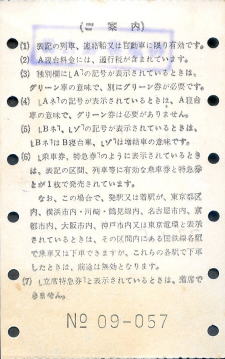 (ご案内)
(1) 表記の列車、連絡船又は自動車に限り有効です。
(2) A寝台料金には、通行税が含まれています。
(3) 種別欄に「A」の記号が表示されているときは、
グリーン車の意味で、別にグリーン券が必要です。
(4) 「Aネ」の記号が表示されているときは、A寝台
車の意味で、グリーン券は必要がありません。
(5) 「Bネ」、「ゾ」の記号が表示されているときは、
「Bネ」はB寝台車、「ゾ」は増結車の意味です。
(6) 「乗車券、特急券」のように表示されているとき
は、表記の区間、列車等に有効な乗車券と特急券
とが1枚で発売されています。
なお、この場合で、発駅又は着駅が、東京都区
内、横浜市内・川崎・鶴見線内、名古屋市内、京
都市内、大阪市内、神戸市内又は東京電環と表示
されているときは、その区間内にある国鉄線各駅
で乗車又は下車できますが、これらの各駅で下車
したときは、前途は無効となります。
(7) 「立席特急券」と表示されているときは、着席で
きません。
№ 09-057